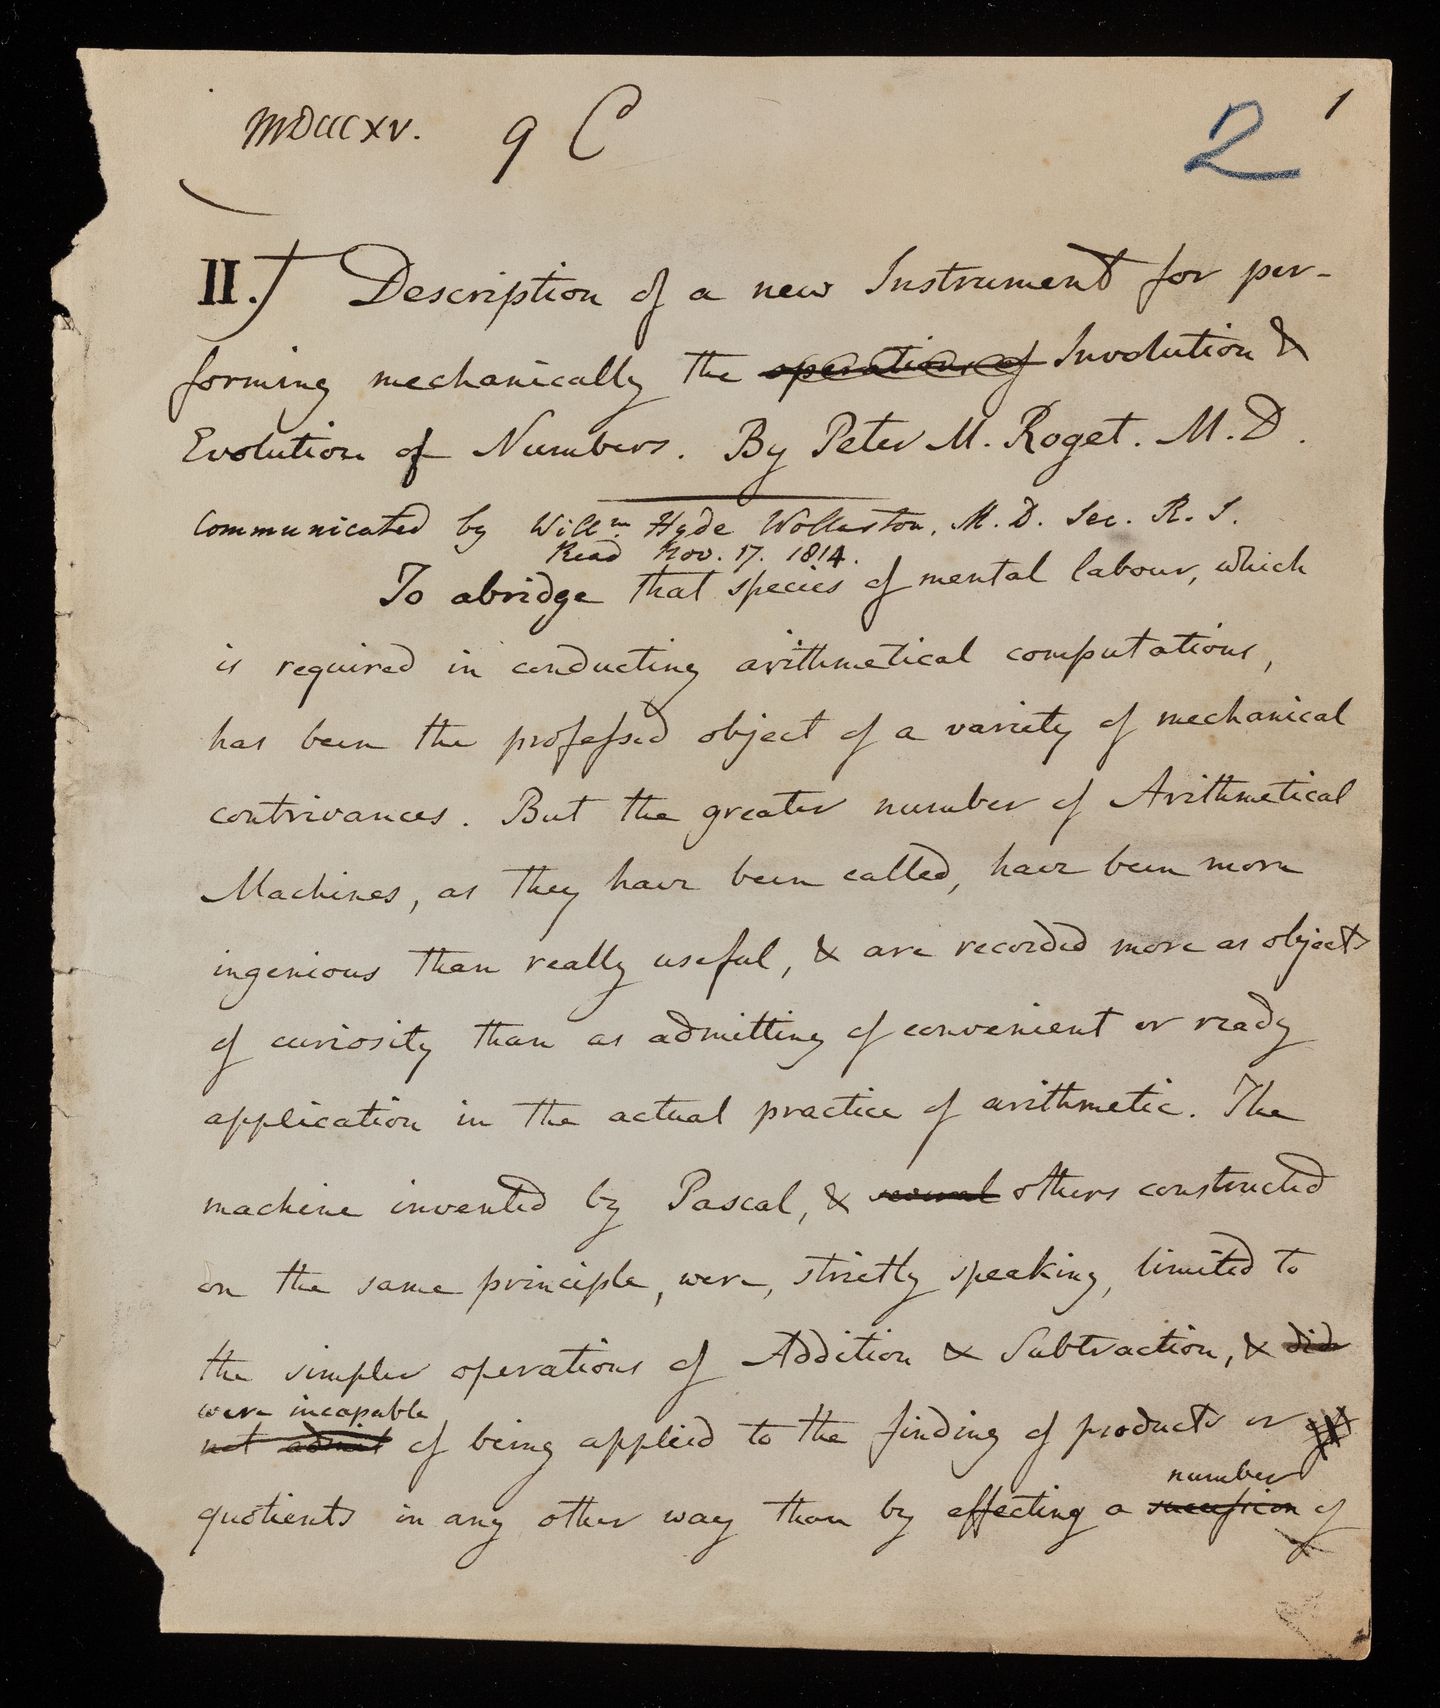 MDCCCXV. 9 C 2 1
II. Description of a new Instrument for per-
forming mechanically the operations of Involution &
Evolution of Numbers. By Peter M. Roget. M.D.
Communicated by Willm. Hyde Wollaston, M.D. Sec. R.S.
Read Nov. 17. 1814.
To abridge that species of mental labour, which
is required in conducting arithmetical computations,
has been the professed object of a variety of mechanical
contrivances. But the greater number of Arithmetical
Machines, as they have been called, have been more
ingenious than really useful, & are recorded more as objects
of curiosity than as admitting of convenient or ready
application in the actual practice of arithmetic. The
machine invented by Pascal, & several others constructed
on the same principle, were, strictly speaking, limited to
the simpler operations of Addition & Subtraction, & did
were incapable
not admit of being applied to the finding of products or
number
quotients in any other way than by effecting a succession of